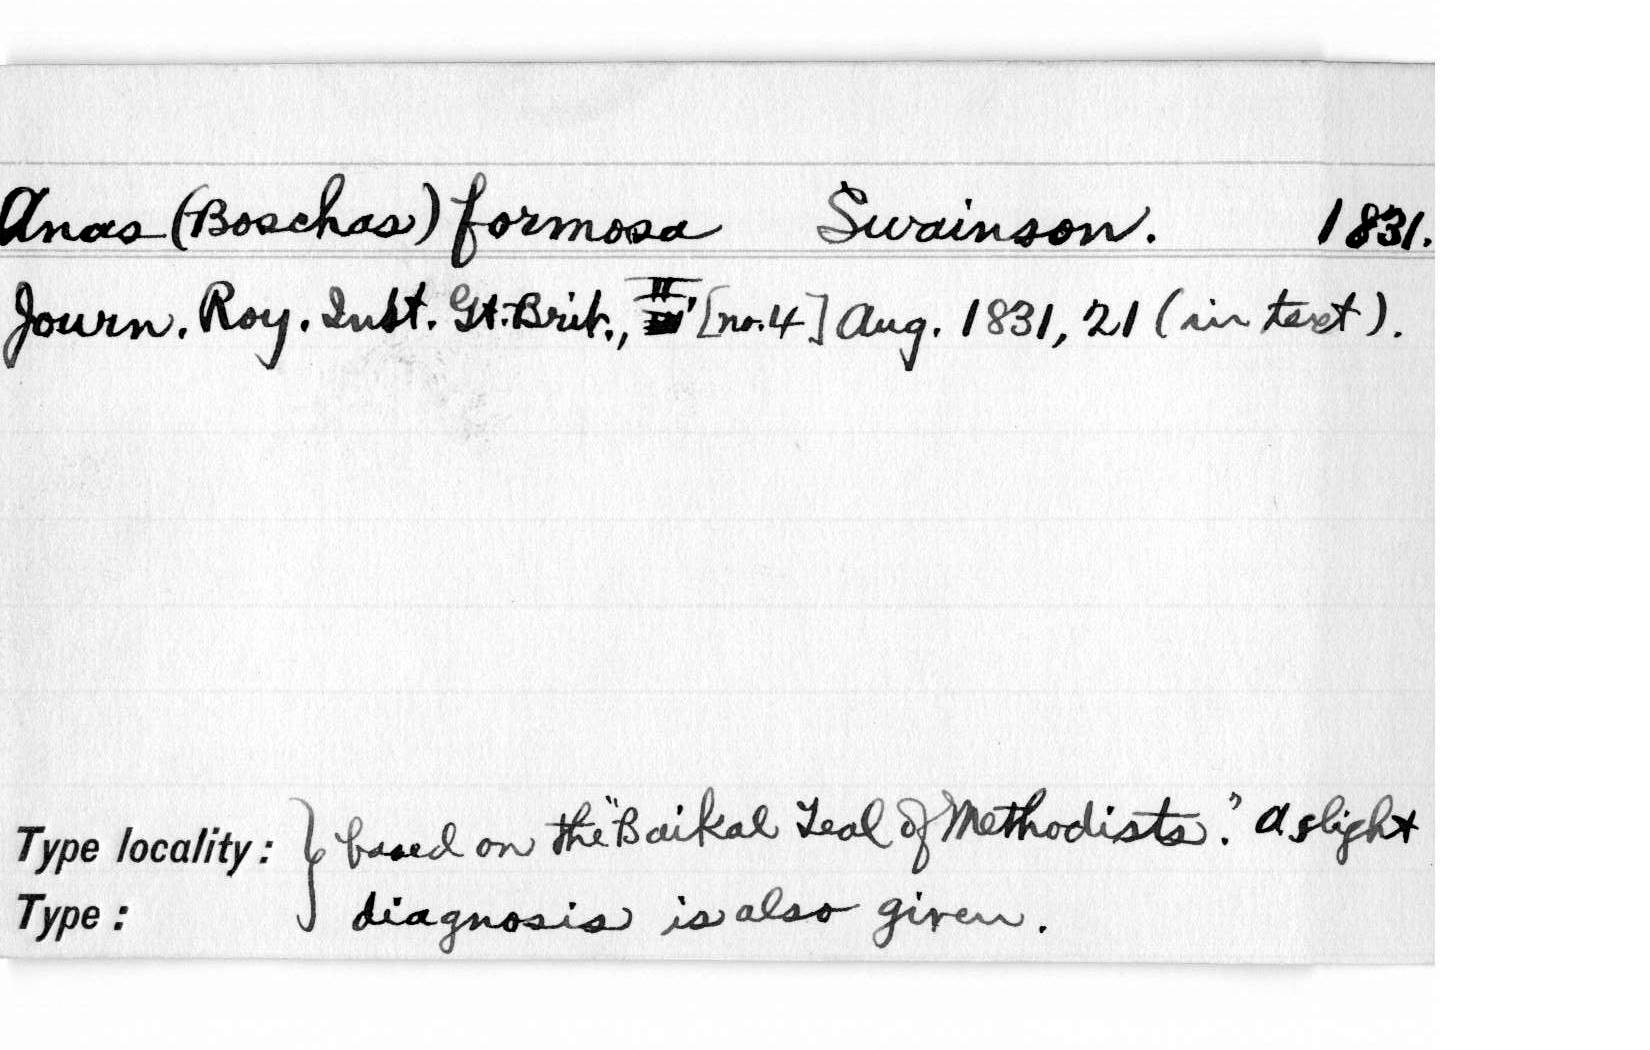 Anas (Boschas) formosa Swainson. 1831.
Journ. Roy. Inst. Gt. Brit., II, [no. 4] Aug. 1831, 21 (in text).
Type locality: } based on the "Baikal Teal of Methodists." A slight
Type: diagnosis is also given.